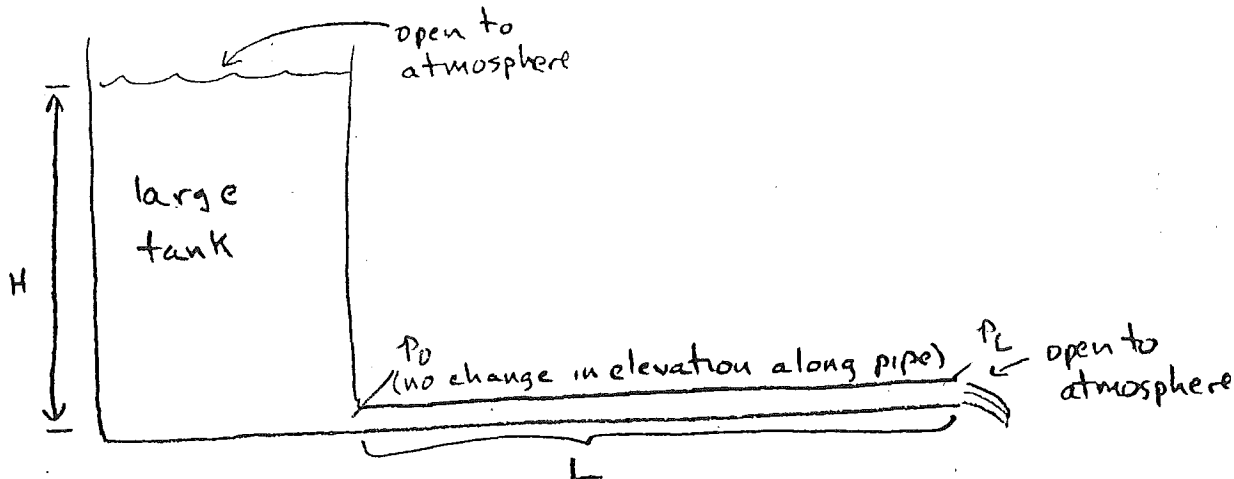 open to
atmosphere
large
tank
H
P0
(no change in elevation along pipe)
PL
open to
atmosphere
L